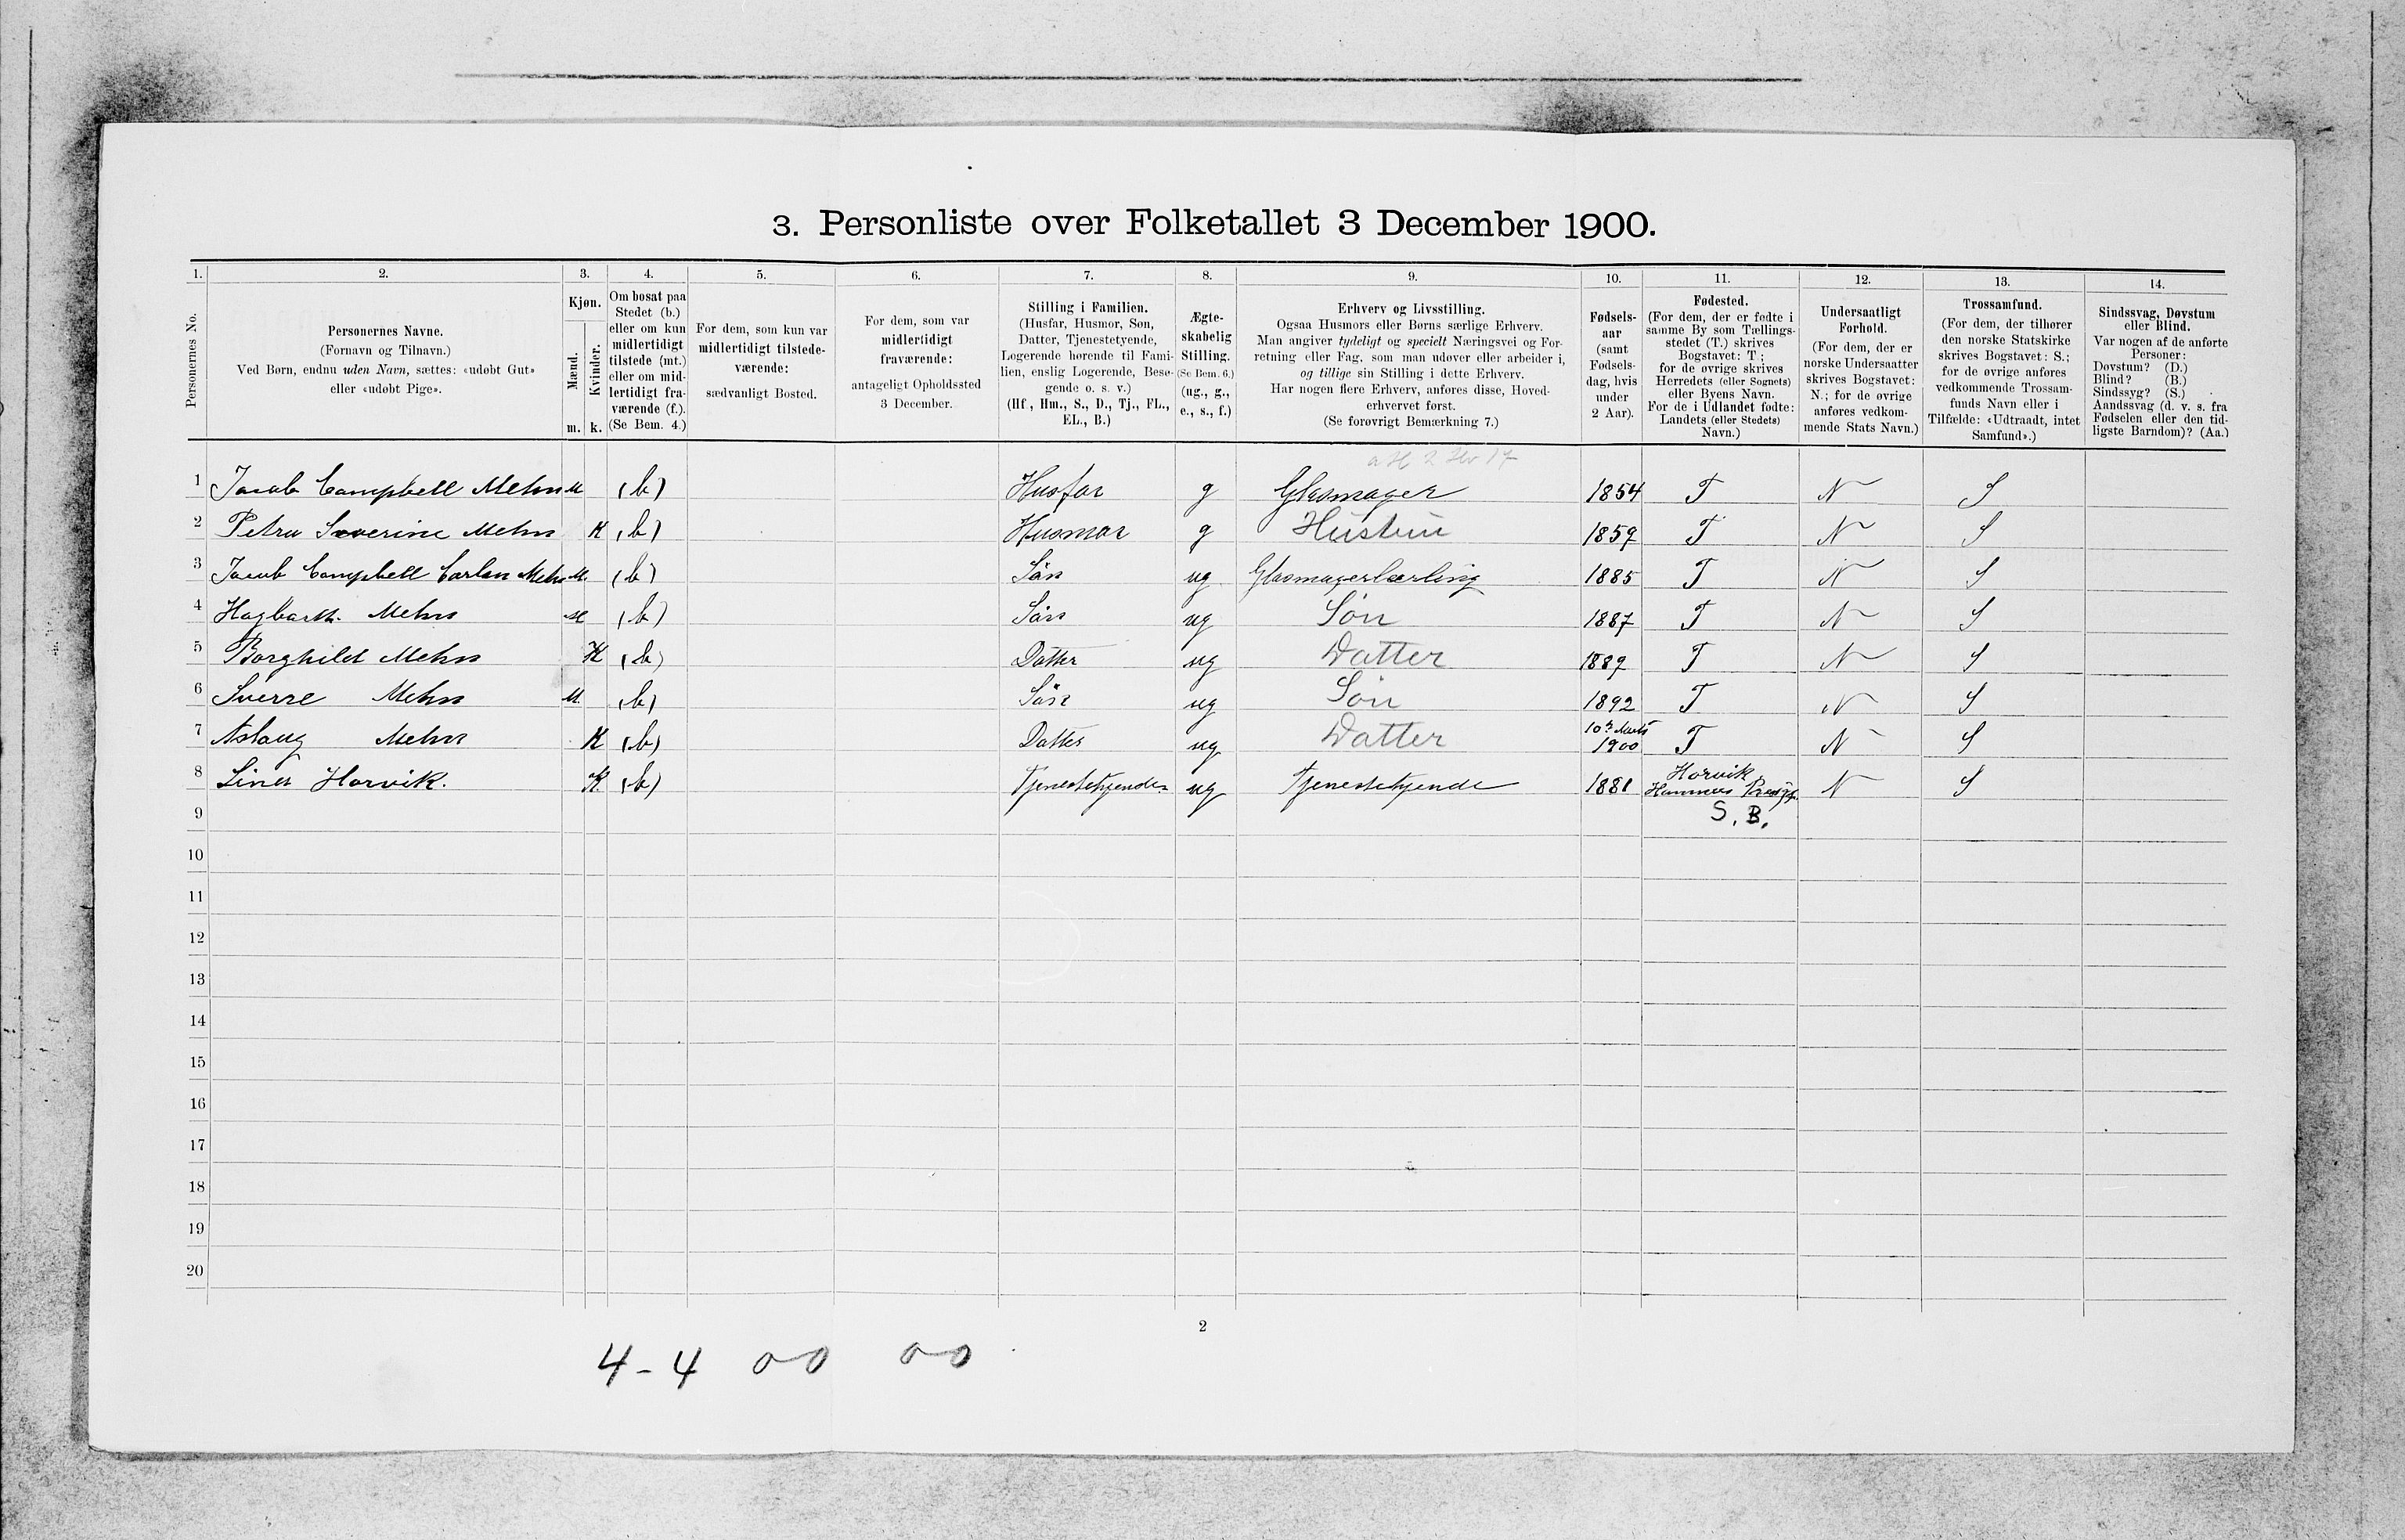 3. Personliste over Folketallet 3 December 1900.
1. 2. 3. 4. 5. 6. 7. 8. 9. 10. 11. 12. 13. 14.
Personernes No.
Personernes Navne.
(Fornavn og Tilnavn.)
Ved Børn, endnu uden Navn, sættes: «udøbt Gut»
eller «udøbt Pige».
Kjøn.
Mænd.
m.
Kvinder.
k.
Om bosat paa
Stedet (b.)
eller om kun
midlertidigt
tilstede (mt.)
eller om mid-
lertidigt fra-
værende (f.).
(Se Bem. 4.)
For dem, som kun var
midlertidigt tilstede-
værende:
sædvanligt Bosted.
For dem, som var
midlertidigt
fraværende:
antageligt Opholdssted
3 December.
Stilling i Familien.
(Husfar, Husmor, Søn,
Datter, Tjenestetyende,
Logerende hørende til Fami-
lien, enslig Logerende, Besø-
gende o. s. v.)
(Hf., Hm., S., D., Tj., FL.,
EL., B.)
Ægte-
skabelig
Stilling.
(Se Bem. 6.)
(ug., g.,
e., s., f.)
Erhverv og Livsstilling.
Ogsaa Husmors eller Børns særlige Erhverv.
Man angiver tydeligt og specielt Næringsvei og For-
retning eller Fag, som man udøver eller arbeider i,
og tillige sin Stilling i dette Erhverv.
Har nogen flere Erhverv, anføres disse, Hoved-
erhvervet først.
(Se forøvrigt Bemærkning 7.)
Fødsels-
aar
(samt
Fødsels-
dag, hvis
under
2 Aar).
Fødested.
(For dem, der er fødte i
samme By som Tællings-
stedet (T.) skrives
Bogstavet: T;
for de øvrige skrives
Herredets (eller Sognets)
eller Byens Navn.
For de i Udlandet fødte:
Landets (eller Stedets)
Navn.)
Undersaatligt
Forhold.
(For dem, der er
norske Undersaatter
skrives Bogstavet:
N.; for de øvrige
anføres vedkom-
mende Stats Navn.)
Trossamfund.
(For dem, der tilhører
den norske Statskirke
skrives Bogstavet: S.;
for de øvrige anføres
vedkommende Trossam-
funds Navn eller i
Tilfælde: «Udtraadt, intet
Samfund».)
Sindssvag, Døvstum
eller Blind.
Var nogen af de anførte
Personer:
Døvstum? (D.)
Blind? (B.)
Sindssyg? (S.)
Aandssvag (d. v. s. fra
Fødselen eller den tid-
ligste Barndom)? (Aa.)
1 Jacob Campbell Mehn M (b) Husfar g Glasmager 1854 T N S
2 Petra Severine Mehn K (b) Husmor g Hustru 1859 T N S
3 Jacob Campbell Carlan Mehn M. (b) Sön ug Glasmagerlærling 1885 T N S
4 Hagbarth. Mehn M (b) Sön ug Søn 1887 T N S
5 Borghild Mehn K (b) Datter ug Datter 1889 T N S
6 Sverre Mehn M (b) Sön ug Søn 1892 T N S
7 Aslaug Mehn K (b) Datter ug Datter 10de Marts 1900 T N S
8 Lina Horvik. K (b) Tjenestetyende ug Tjenestetyende 1881 Horvik N S
S. B.
9
10
11
12
13
14
15
16
17
18
19
20
2
4-4 00 00